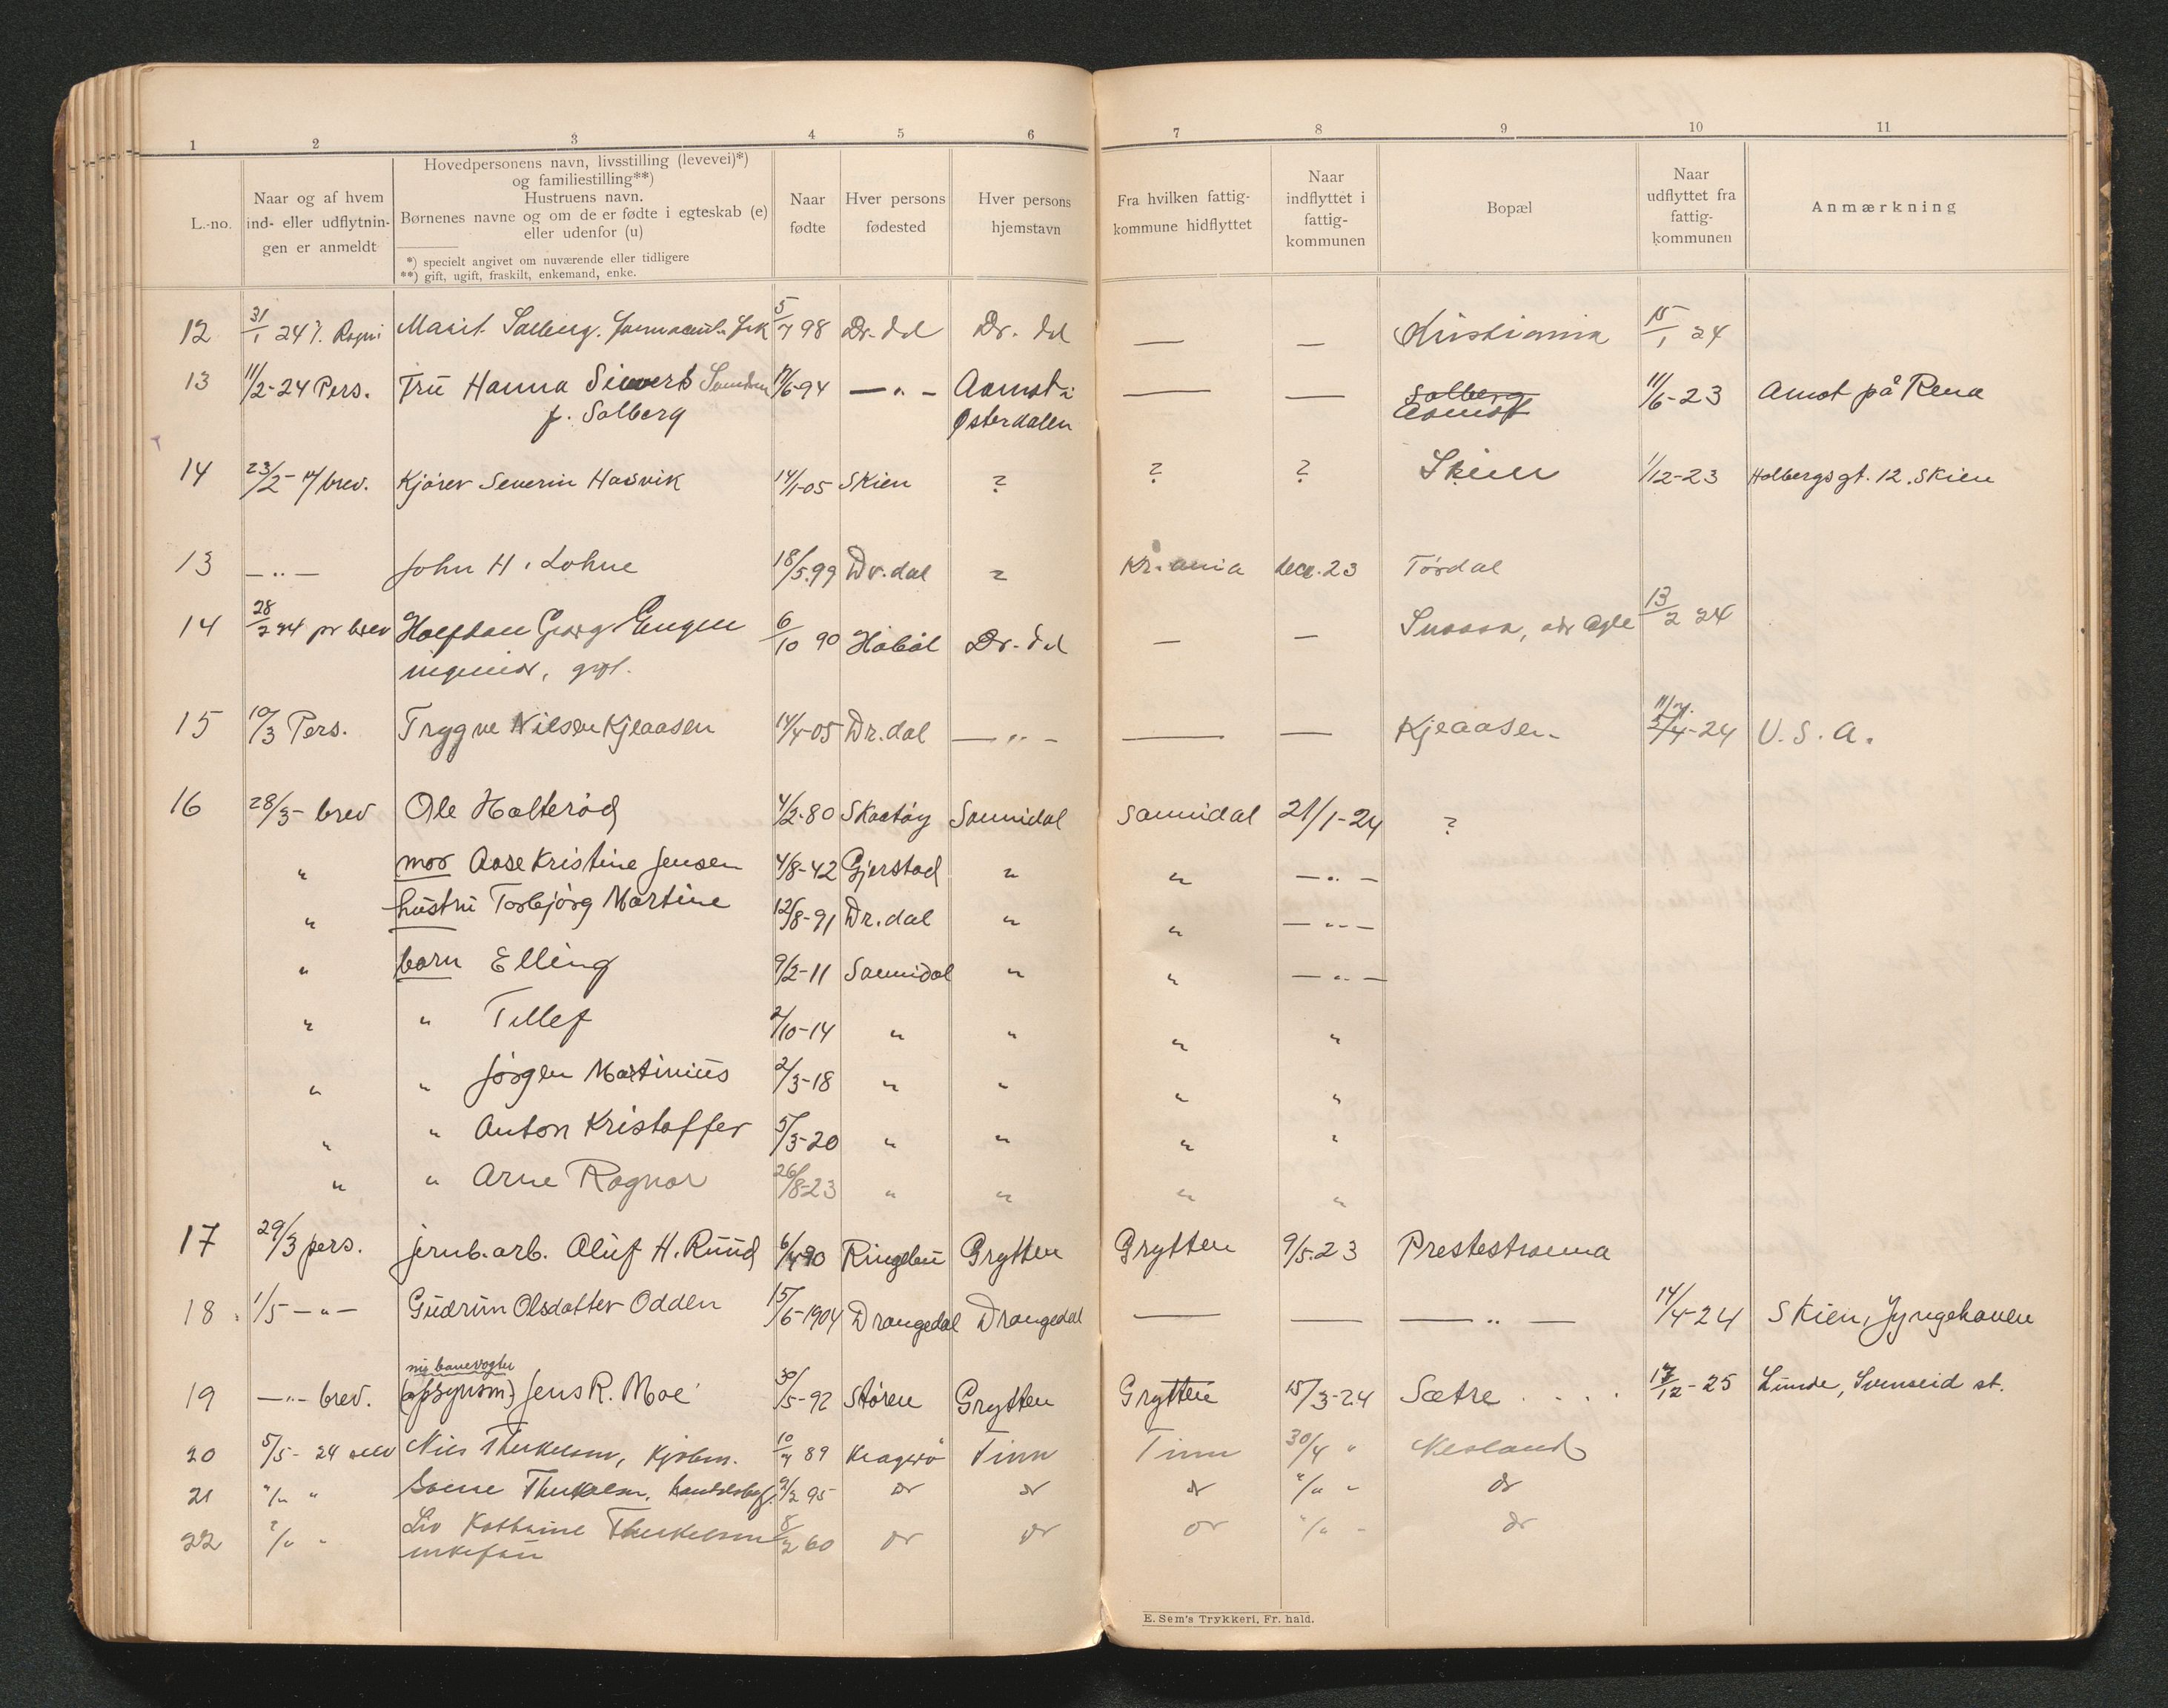 1 2 3 4 5 6 7 8 9 10 11
L.-no.
Naar og af hvem
ind- eller udflytnin-
gen er anmeldt
Hovedpersonens navn, livsstilling (levevei)*)
og familiestilling**)
Hustruens navn.
Børnenes navne og om de er fødte i egteskab (e)
eller udenfor (u)
*) specielt angivet om nuværende eller tidligere
**) gift, ugift, fraskilt, enkemand, enke.
Naar
fødte
Hver persons
fødested
Hver persons
hjemstavn
Fra hvilken fattig-
kommune hidflyttet
Naar
indflyttet i
fattig-
kommunen
Bopæl
Naar
udflyttet fra
fattig-
kommunen
Anmærkning
12 31/1 24 Marit Solberg. 5/7 98 Dr. dal Dr. dal — — Kristiania 15/1 24
13 11/2-24 Pers. Fru Hanna Siverts 17/6-94 — " — Aamot i — — Solberg 11/6-23 Amot på Rena
f. Solberg Østerdalen Aamot
14 23/2- brev. Kjørev Severin Hasvik 14/1-05 Skien ? ? ? Skien 1/12-23 Holbergsgt. 12. Skien
13 — " — John H. Lohne 18/5.99 Dr. dal ? Kr.ania dec. 23 Tørdal
14 28/2 24 pr brev Halfdan Georg Engen 6/10 90 Håbøl Dr. dal — — Snaasa, 13/2 24
ingeniør, gift.
15 10/3 Pers. Trygve Nilsen Kjeaasen 14/4-05 Dr. dal — " — — — Kjeaasen 5/4-24 U.S.A.
16 28/3- brev Ole Holterød 4/2-80 Skaatøy Sannidal Sannidal 21/1-24 ?
" mor Aase Kristine Jensen 4/8-42 Gjerstad " " — " —
" hustru Torbjørg Martine 12/8-91 Dr. dal " " — " —
" barn Elling 9/2-11 Sannidal " " — " —
" " Tellef 2/10-14 " " " "
" " Jørgen Martinius 2/3-18 " " " "
" " Anton Kristoffer 5/3-20 " " " "
" " Arne Ragnar 26/8-23 " " " "
17 29/3 pers. jernb. arb. Oluf H. Ruud 6/4-90 Ringebu Grytten Grytten 9/5.23 Prestestranna
18 1/5 — " — Gudrun Olsdatter Odden 15/6-1904 Drangedal Drangedal — — — " — 14/4-24 Skien, Jyngehaven
nu banevogter
19 — " — brev. (opsynsm) Jens R. Moe 30/5-92 Støren Grytten Grytten 15/3-24 Sætre 17/12-25 Lunde, Svenseid st.
20 5/5-24 selv Nils Therkelsen, kjøbm. 10/7 89 Kragerø Tinn Tinn 30/4 " Nesland
21 "/" " Therkelsen, 9/2 95 do do do "/" " do
22 "/" " Liv Kathrine Therkelsen 8/2 60 do do do "/" " do
enkefru
E. Sem's Trykkeri, Fr. hald.